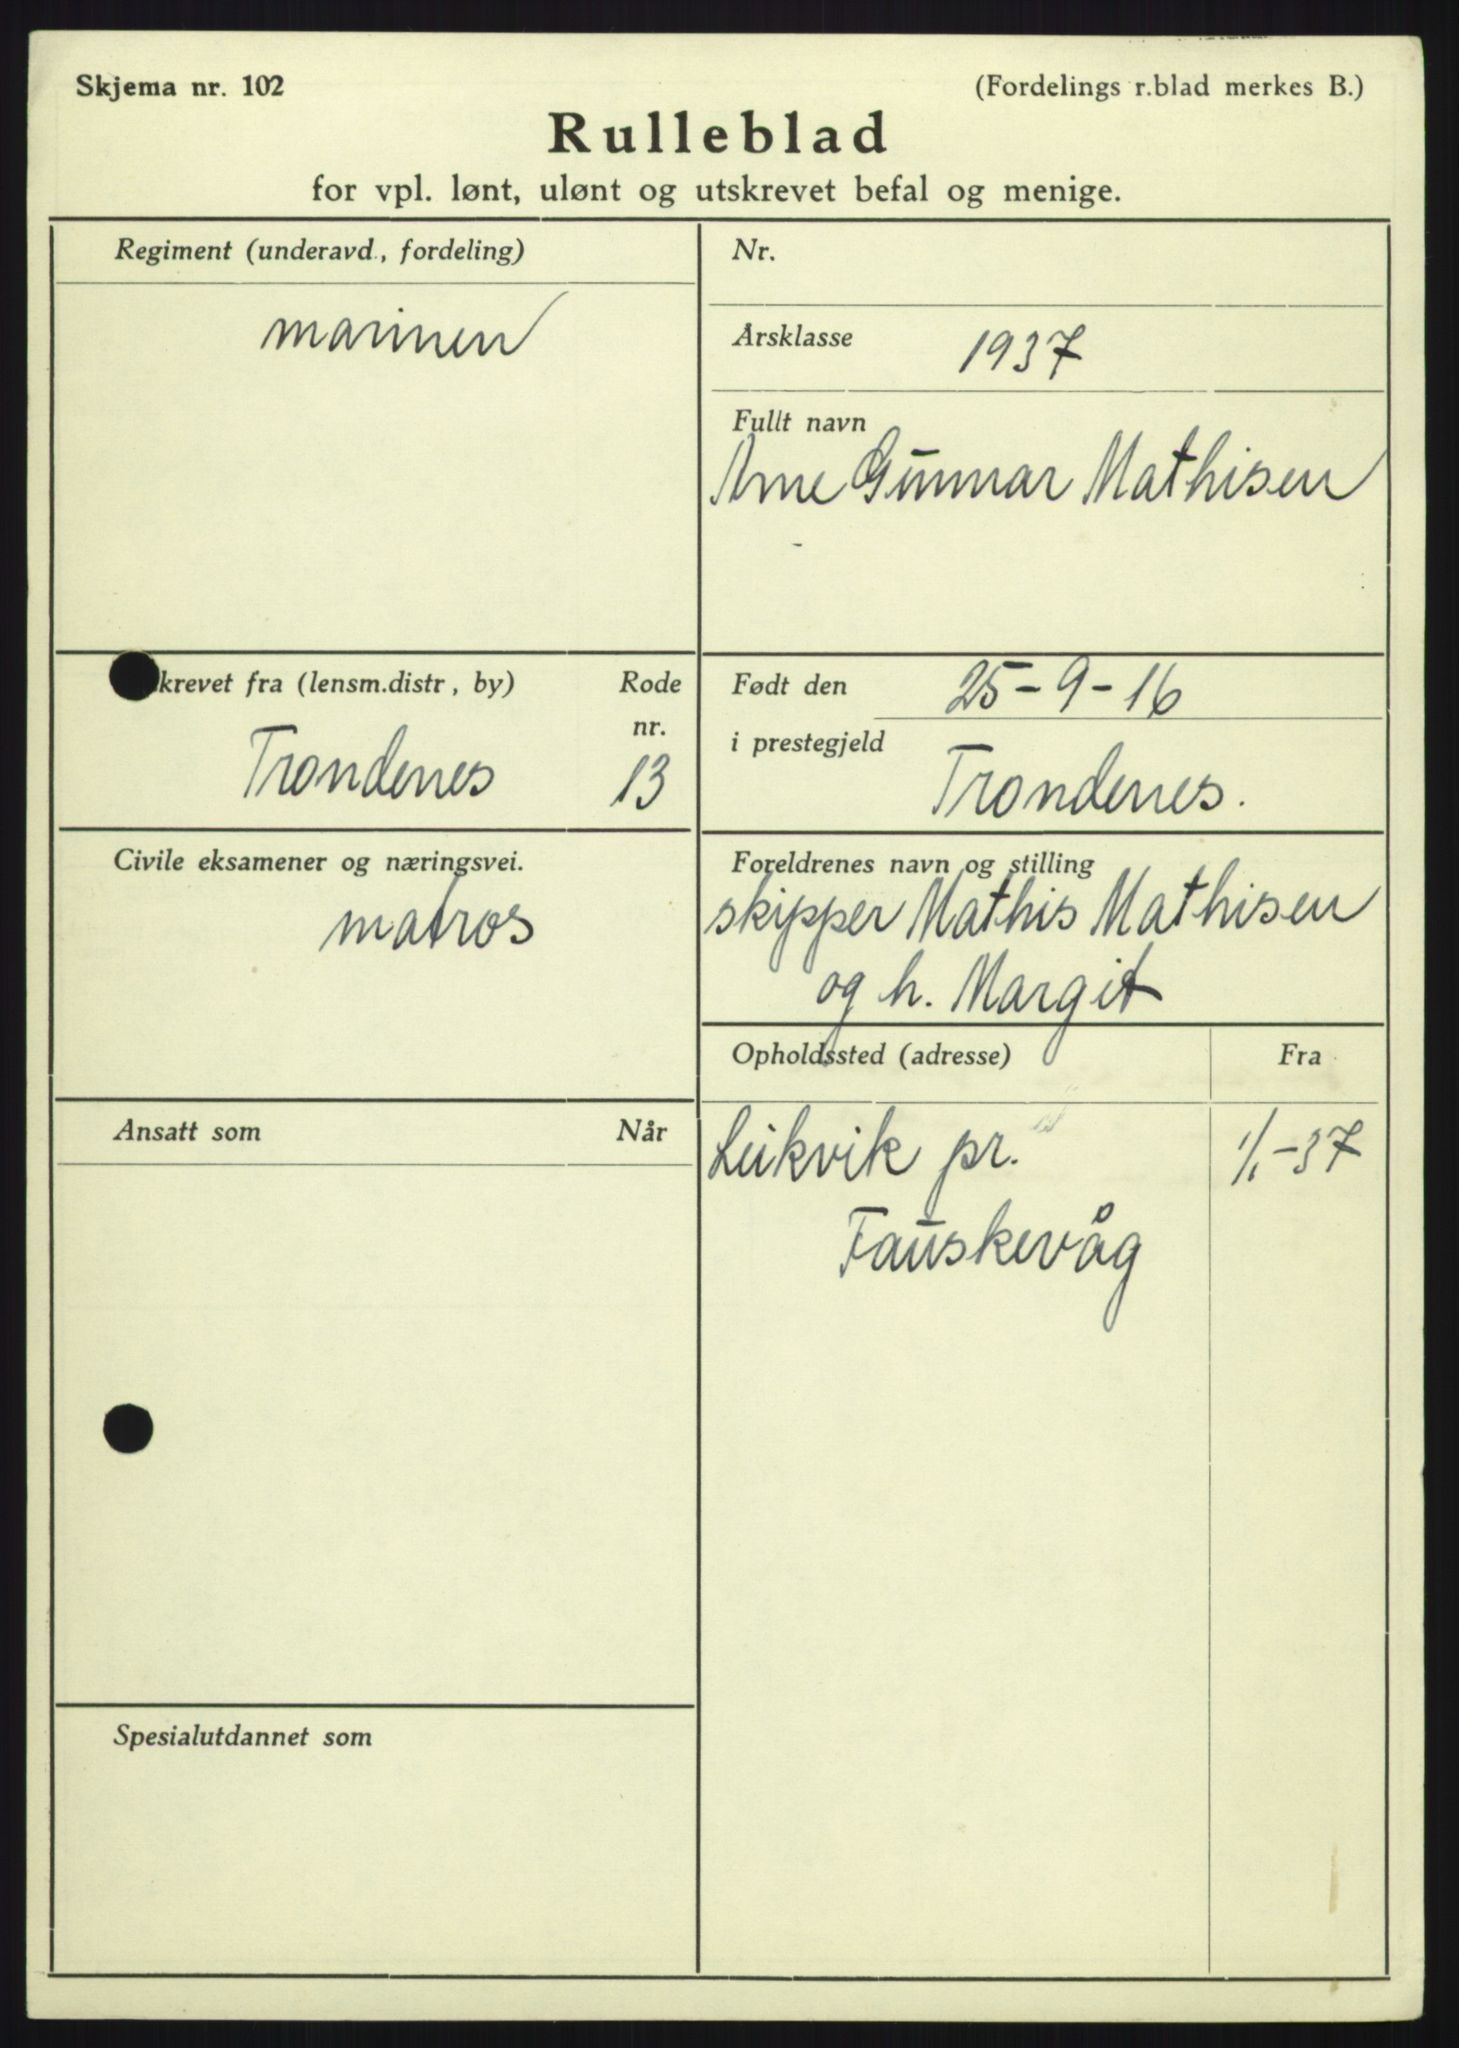 Skjema nr. 102
(Fordelings r.blad merkes B.)
Rulleblad
for vpl. lønt, ulønt og utskrevet befal og menige.
Regiment (underavd., fordeling)
marinen
Nr.
Årsklasse
1937
Fullt navn
Arne Gunnar Mathisen
krevet fra (lensm.distr., by)
Rode
nr.
Trondenes
13
Født den
25-9-16
i prestegjeld
Trondenes.
Civile eksamener og næringsvei.
matros
Foreldrenes navn og stilling
skipper Mathis Mathisen
og h. Margit
Opholdssted (adresse)
Fra
Leikvik pr.
1/1-37
Fauskevåg
Ansatt som
Når
Spesialutdannet som